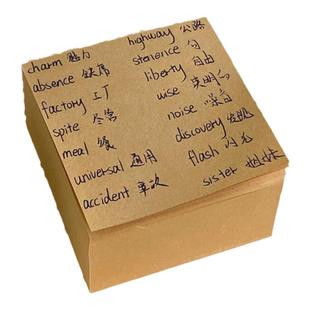 charm 魅力
absence 缺席
factory 工厂
spite 尽管
meal 餐
universal 通用
accident 事次
highway 公路
starence 句
liberty 自由
wise 英明的
noise 噪音
discovery 发现
flash 闪光
sister 姐妹